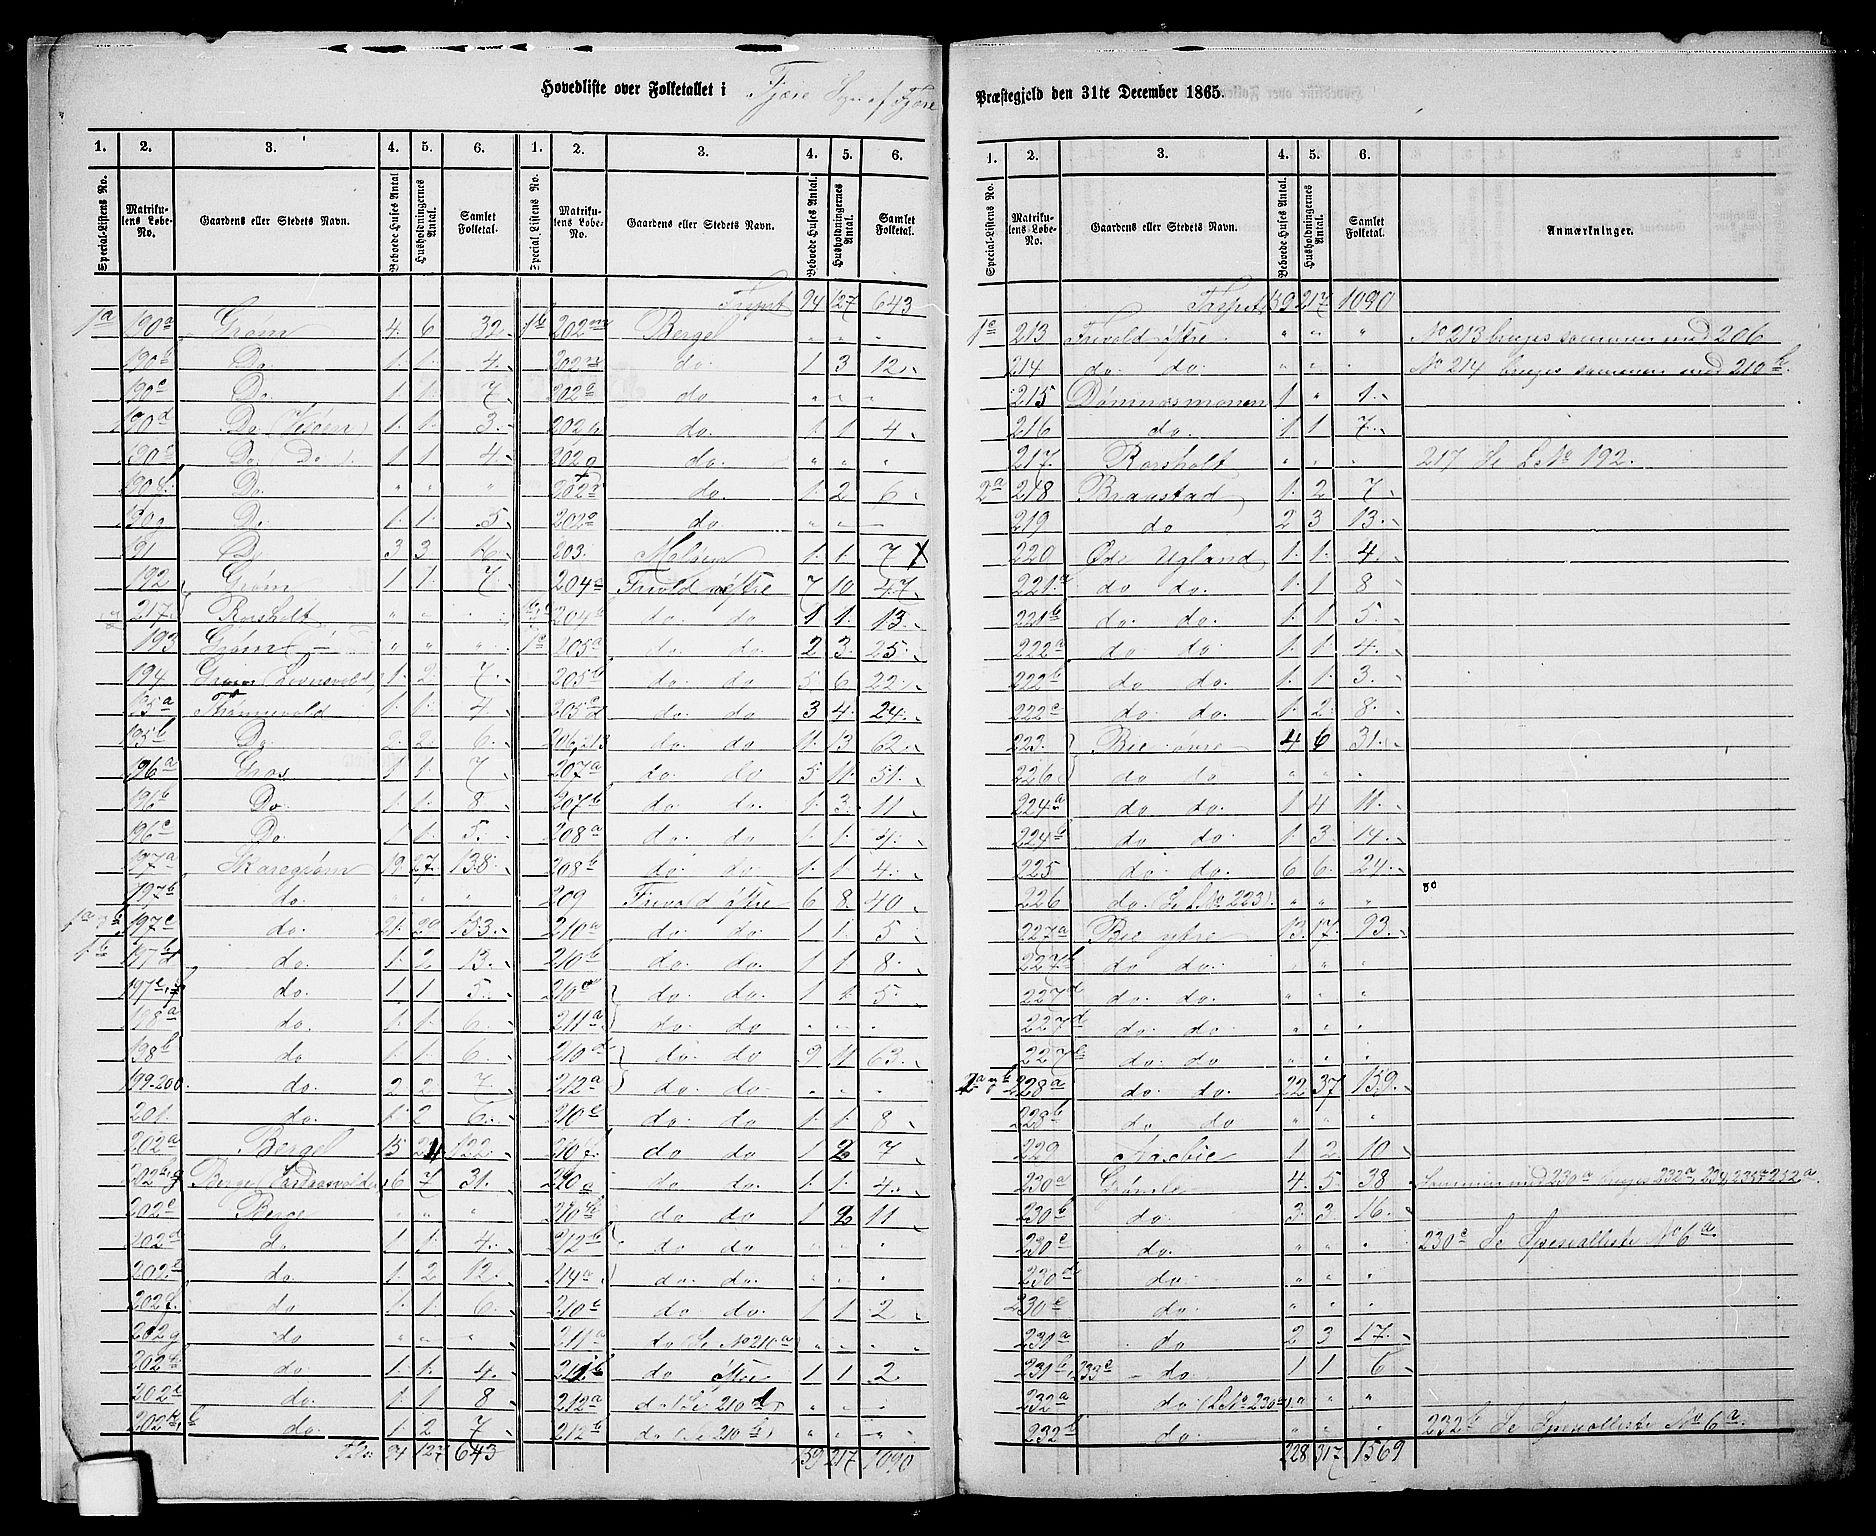 Hovedliste over Folketallet i Fjære Sogn af Fjære Præstegjeld den 31te December 1865.
1. 2. 3. 4. 5. 6. 1. 2. 3. 4. 5. 6.
Special-Listens No. Matrikulens Løbe-No. Gaardens eller Stedets Navn. Beboede Huses Antal Husholdningernes Antal. Samlet Folketal. Special-Listens No. Matrikulens Løbe-No. Gaardens eller Stedets Navn. Beboede Huses Antal. Husholdningernes Antal. Samlet Folketal.
1a 190a Grøm 4. 6 32
190b Do 1. 1. 4.
190c Do 1 1 7
190d Do 1. 1. 3.
190e Do (Do) 1 1 4.
190f. Do " " "
190g Do 1. 1. 5.
191 Do 3 3
192 Grøm 1 1. 7.
217. Rorsholt " "
193 Grøm " " "
194 Grøm 1. 2 7.
195a Trønnevold 1. 1. 4
195b Do 2. 2. 6.
196a Gros 1 1. 7
196b Do. 1. 1. 8
196c Do. 1 1. 5.
197a Skaregrøm 19 27. 138.
197b do. " " "
197c do. 21. 29 153.
1b 197d do. 1. 2 13.
197e,f do. 1 1 5.
198a do. 1 1 6.
198b do 1. 1. 6.
199-200. do. 2 2 7.
201. do. 1. 2 6.
202a Berge 15 24 122.
202b,g Berge 6 7 31.
202c Berge " " "
202d do 1 1. 4.
202e do. 1 2 12.
202f. do 1. 1. 6
202g do " " "
202h do. 1. 1. 4
202i do. 1 1 8
202k, l do. 1. 2 7
94 127 643
Transpt 94 127 643
1b 202m Berge " " "
202n do. 1 3 12
202o do " " "
202p do. 1 1 4
202q do. " " "
do. 1. 2 6
do " "
203. 1. 1. 7
204a Frivold vestre 7 10 47.
204b do. do 1 1. 13.
1c 205a do. do. 2 3. 25.
205b do. do. 5 6. 22.
205c d do. do 3 4. 24.
206,213 do. do 11. 13 62
207a do. do 5 11. 51.
207b do. do. 1. 3. 11
208a do. do 1. 1. 4.
208b do. do 1 1 4.
209 Frivold østre 6 8 40
210a do. do 1 1. 5
210b do. do. 1 1 8.
do. do. 1 1. 5.
211a. do. do " " "
210d do. do 9 11 63.
212a do. do. " " "
210e do. do. 1. 1. 8
210f. do do 1 2 7
do. do. 1 1. 4.
210h do do 1 2 11
212b do. do. " " "
214a do. do. " "
do. do. 1 1 2
211a do (Se No 210a) " " "
211b do 1 1 2
212a do (Se 210d) " " "
212b do (Se 210h) " " "
159 217 1090
1. 2. 3. 4. 5. 6.
Special-Listens No. Matrikulens Løbe-No. Gaardens eller Stedets Navn. Beboede Huses Antal. Husholdningernes Antal. Samlet Folketal. Anmærkninger.
Transpt 159 217 1090
1c 213 Frivold østre " " " No 213 bruges sammen med 206
214 do do " " " No 214 bruges sammen med 210h.
215 Dømmesmoen 1 " 1.
216 do. 1 1 7.
217. Rorsholt " " " 217 Se L No 192.
2a 218 Braastad 1. 2 7
219 do 2 3 13.
220 Øde Ugland 1 1. 4.
221a do do. 1 1 8
221b do. do. 1 1 5.
222a do do. 1 1 4.
222b do. do. 1. 1. 3.
222c do. do. 1. 2 8.
223. Bie øvre 4 6 31.
226 do. do " " "
224a do. do 1 4 11.
224b do. do 1. 3. 14.
225 do. do. 6 6. 24.
226 do. (Se L No 223). " " "
227a Bie ytre 13. 17. 93.
227b do do. " " "
do. do. " " "
227d do. do " " "
227e do. do " " "
228a do. do. 22 37 159.
228b do do " " "
229 Aasbie 1 2 10
230a Grømle 4. 5 38 Sammen med 230a bruges 232a, 234, 235
230b do. 3. 3. 16.
230c do. " " " 230c Se Specialliste No 6a.
230d do. " " "
230e do. " " "
231a do 2 3 17.
231b 233c do. 1 1 6
232a do (L No 230a). " " "
232b do. " " " 232b Se Specialliste No 6a.
228 317 1569